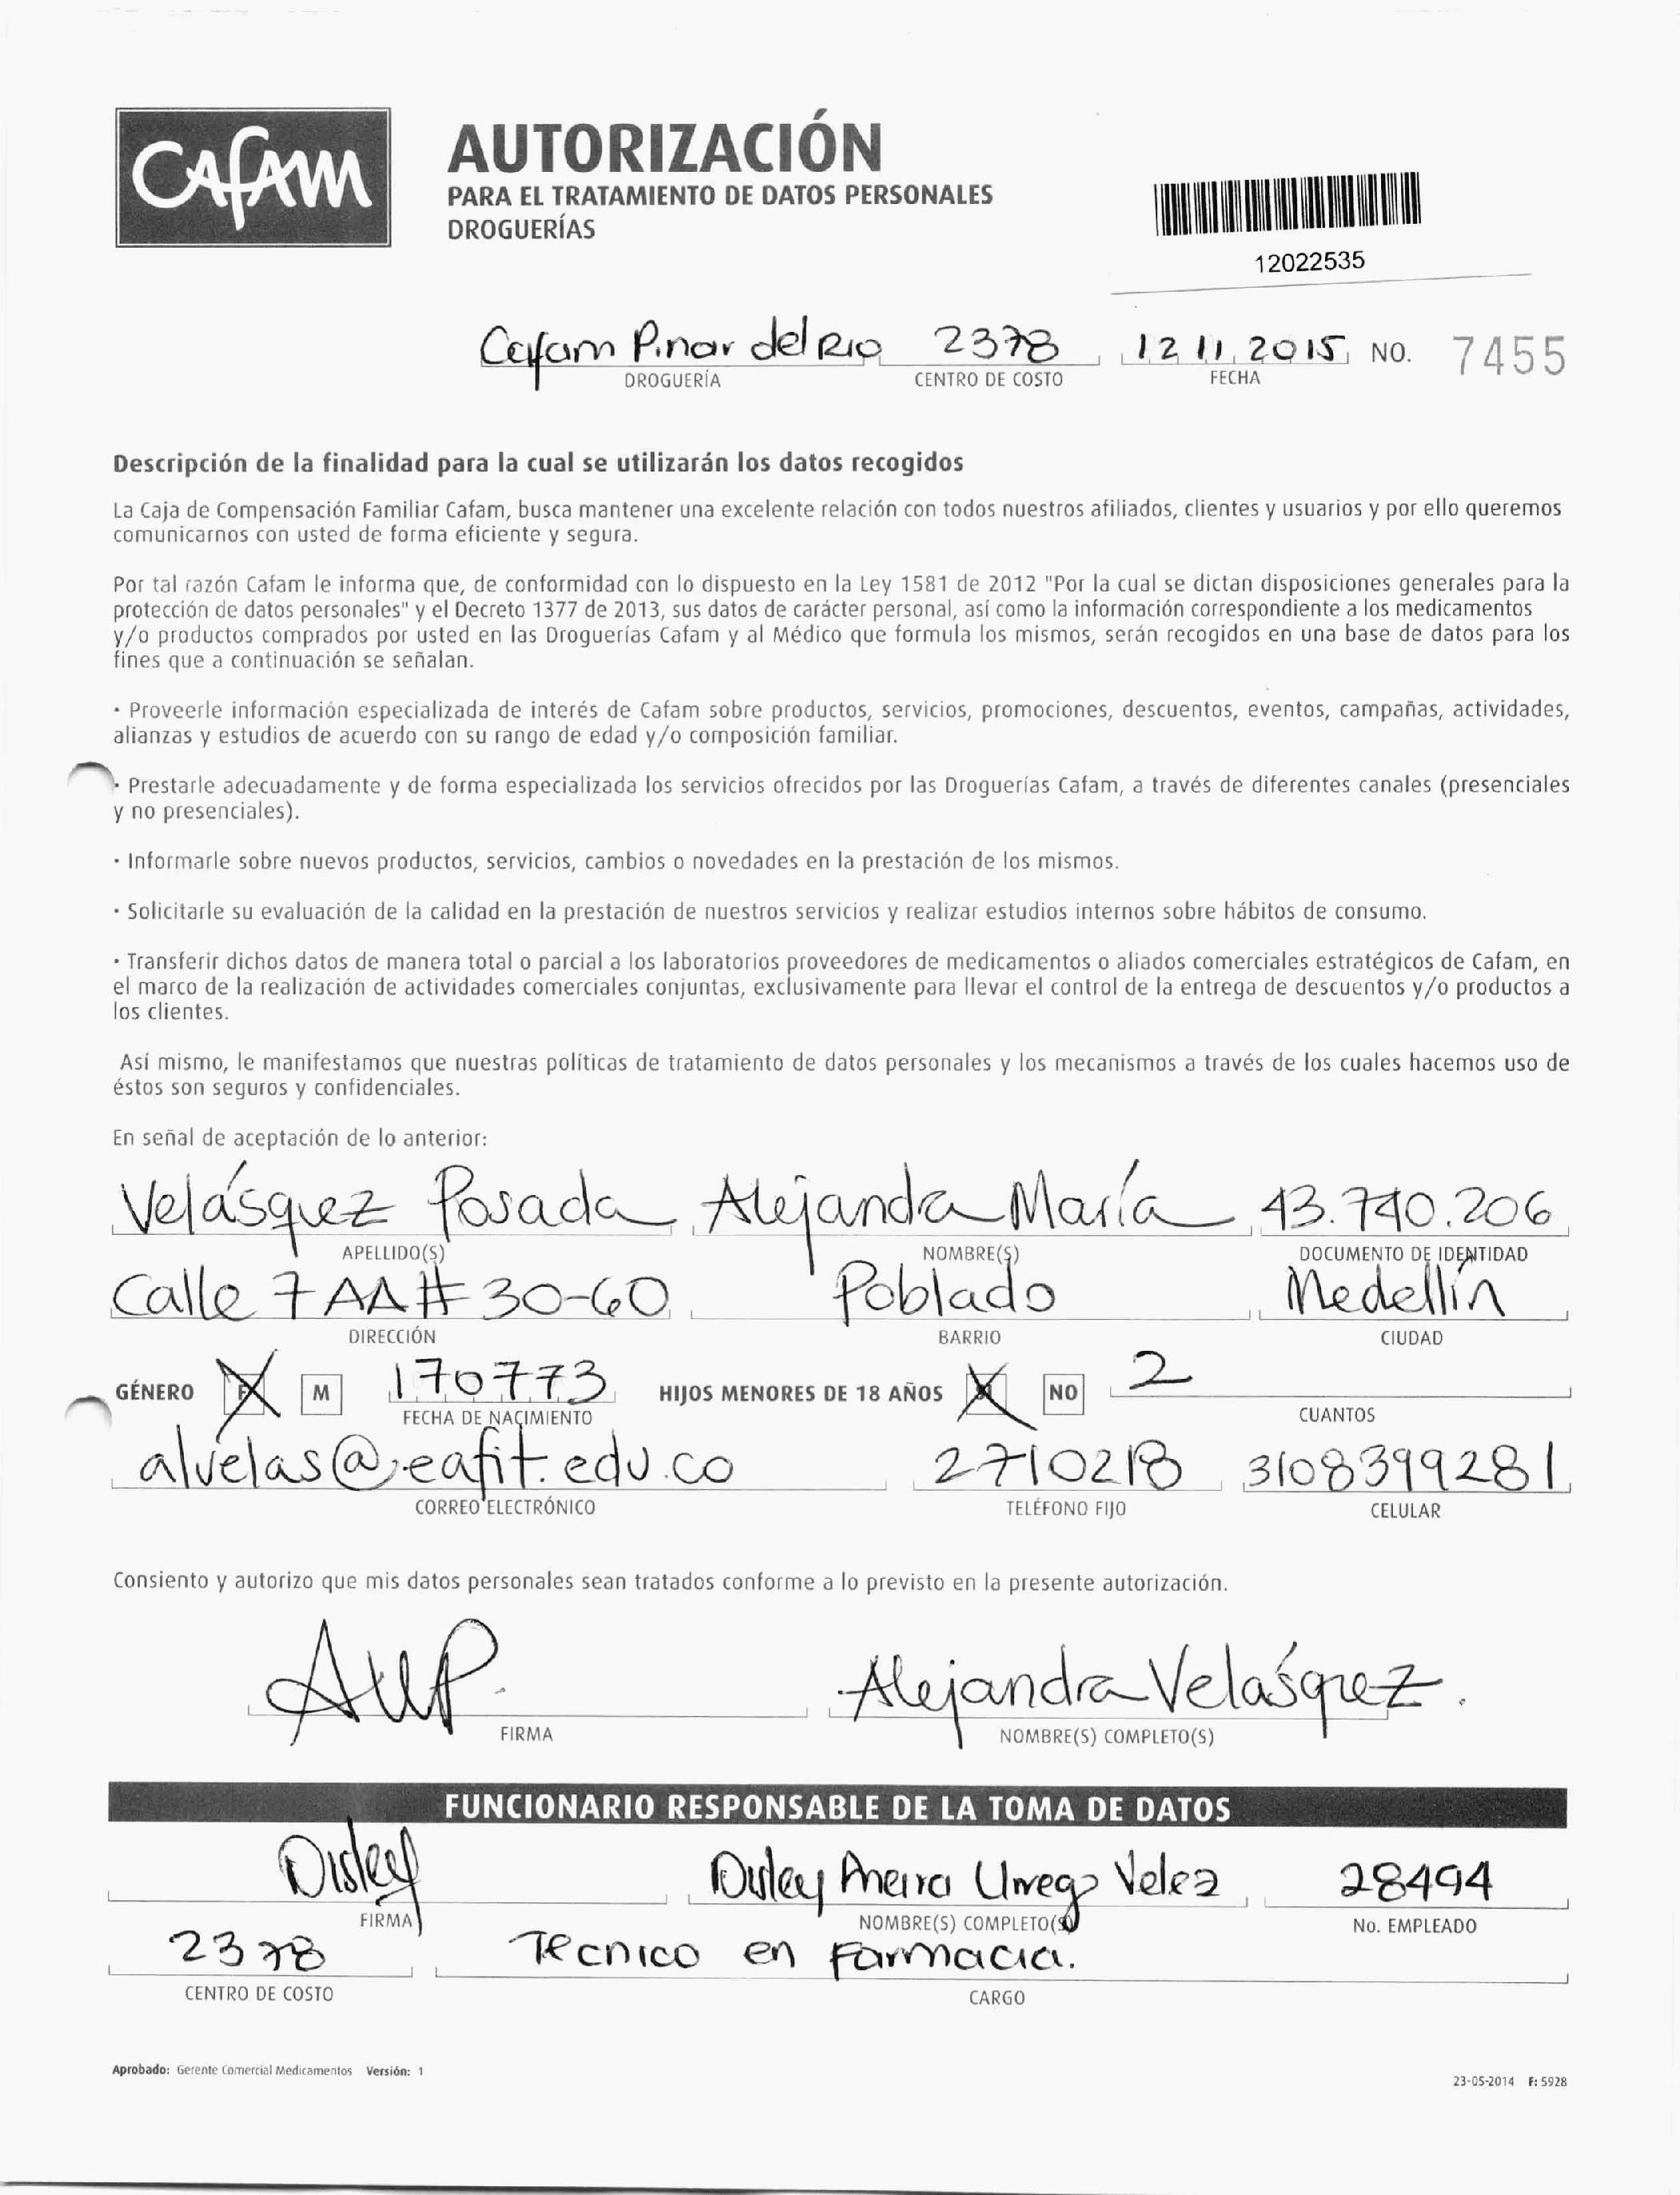 CAFAM
AUTORIZACIÓN
PARA EL TRATAMIENTO DE DATOS PERSONALES
DROGUERÍAS
12022535
Cafam Pinar del Rio 2378 12 11 2015 NO. 7455
DROGUERÍA CENTRO DE COSTO FECHA
Descripción de la finalidad para la cual se utilizarán los datos recogidos
La Caja de Compensación Familiar Cafam, busca mantener una excelente relación con todos nuestros afiliados, clientes y usuarios y por ello queremos
comunicarnos con usted de forma eficiente y segura.
Por tal razón Cafam le informa que, de conformidad con lo dispuesto en la Ley 1581 de 2012 "Por la cual se dictan disposiciones generales para la
protección de datos personales" y el Decreto 1377 de 2013, sus datos de carácter personal, así como la información correspondiente a los medicamentos
y/o productos comprados por usted en las Droguerías Cafam y al Médico que formula los mismos, serán recogidos en una base de datos para los
fines que a continuación se señalan.
· Proveerle información especializada de interés de Cafam sobre productos, servicios, promociones, descuentos, eventos, campañas, actividades,
alianzas y estudios de acuerdo con su rango de edad y/o composición familiar.
· Prestarle adecuadamente y de forma especializada los servicios ofrecidos por las Droguerías Cafam, a través de diferentes canales (presenciales
y no presenciales).
· Informarle sobre nuevos productos, servicios, cambios o novedades en la prestación de los mismos.
· Solicitarle su evaluación de la calidad en la prestación de nuestros servicios y realizar estudios internos sobre hábitos de consumo.
· Transferir dichos datos de manera total o parcial a los laboratorios proveedores de medicamentos o aliados comerciales estratégicos de Cafam, en
el marco de la realización de actividades comerciales conjuntas, exclusivamente para llevar el control de la entrega de descuentos y/o productos a
los clientes.
Así mismo, le manifestamos que nuestras políticas de tratamiento de datos personales y los mecanismos a través de los cuales hacemos uso de
éstos son seguros y confidenciales.
En señal de aceptación de lo anterior:
Velásquez Posada Alejandra María 43.740.206
APELLIDO(S) NOMBRE(S) DOCUMENTO DE IDENTIDAD
Calle 7AA# 30-60 Poblado Medellín
DIRECCIÓN BARRIO CIUDAD
GÉNERO F M 170773 HIJOS MENORES DE 18 AÑOS NO 2
FECHA DE NACIMIENTO CUANTOS
alvelas@eafit.edu.co 2710218 3108399281
CORREO ELECTRÓNICO TELÉFONO FIJO CELULAR
Consiento y autorizo que mis datos personales sean tratados conforme a lo previsto en la presente autorización.
AVP. Alejandra Velásquez.
FIRMA NOMBRE(S) COMPLETO(S)
FUNCIONARIO RESPONSABLE DE LA TOMA DE DATOS
Disley Urrego Velez 28494
FIRMA NOMBRE(S) COMPLETO(S) No. EMPLEADO
2378 Tecnico en Farmacia.
CENTRO DE COSTO CARGO
Aprobado: Gerente Comercial Medicamentos Versión: 1
23-05-2014 F: 5928